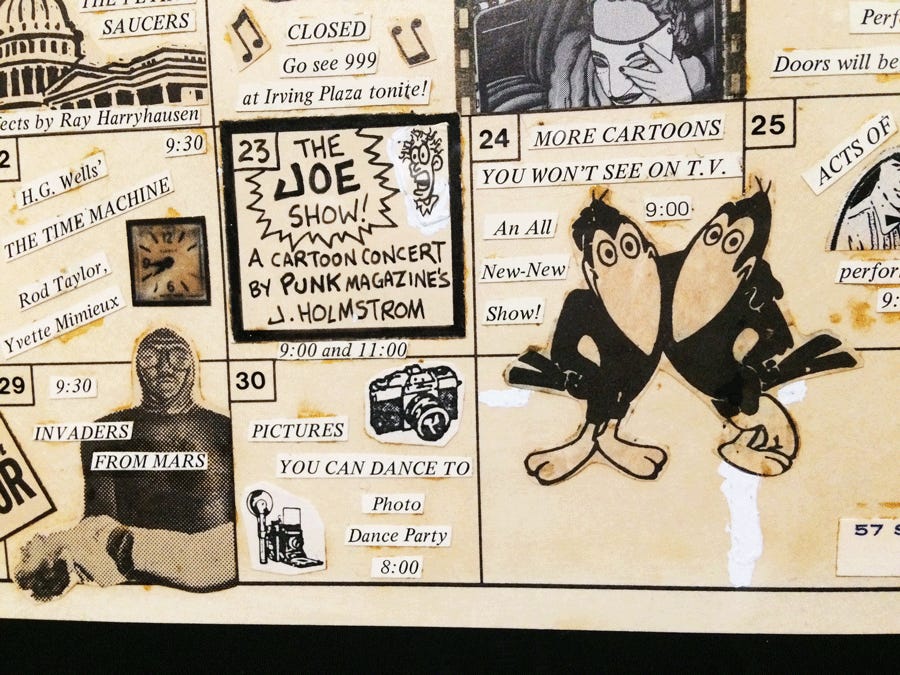 SAUCERS
ects by Ray Harryhausen
CLOSED
Go see 999
at Irving Plaza tonite!
Doors will be
2
9:30
H.G. Wells'
THE TIME MACHINE
Rod Taylor,
Yvette Mimieux
23
THE
JOE
SHOW!
A CARTOON CONCERT
BY PUNK MAGAZINE'S
J. HOLMSTROM
9:00 and 11:00
24
MORE CARTOONS
YOU WON'T SEE ON T.V.
9:00
An All
New-New
Show!
25
ACTS OF
perfor
9:
29
9:30
INVADERS
FROM MARS
OR
30
PICTURES
YOU CAN DANCE TO
Photo
Dance Party
8:00
57 S